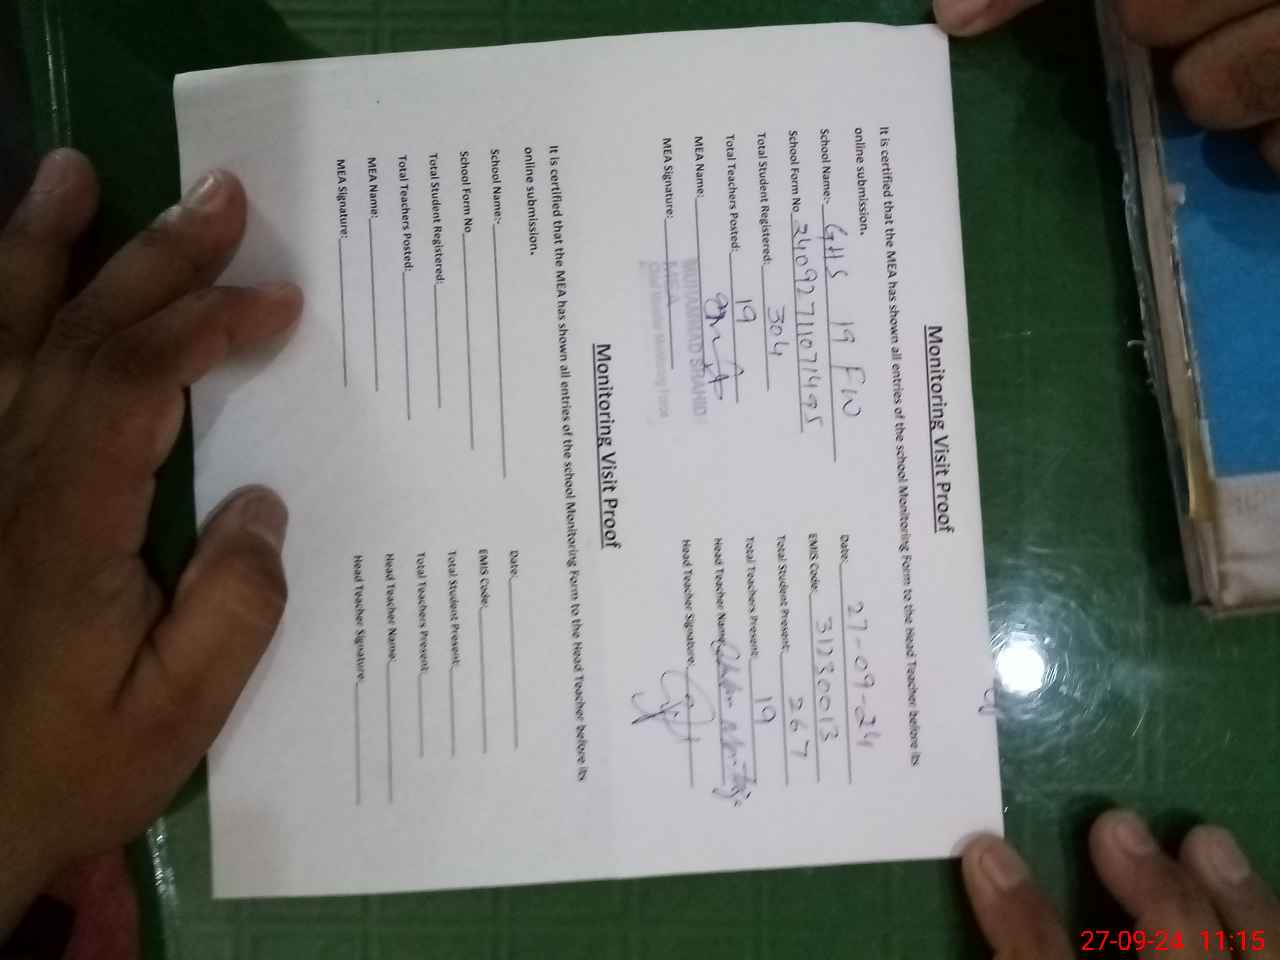 Monitoring Visit Proof
It is certified that the MEA has shown all entries of the school Monitoring Form to the Head Teacher before its
online submission.
School Name:- GHS 19 FW Date: 27-09-24
School Form No 24092711071495 EMIS Code: 31230013
Total Student Registered: 304 Total Student Present: 267
Total Teachers Posted: 19 Total Teachers Present: 19
MEA Name: MUHAMMAD SHAHID Head Teacher Name:
MEA Signature: MEA Head Teacher Signature:
Monitoring Force
Monitoring Visit Proof
It is certified that the MEA has shown all entries of the school Monitoring Form to the Head Teacher before its
online submission.
School Name:- Date:
School Form No EMIS Code:
Total Student Registered: Total Student Present:
Total Teachers Posted: Total Teachers Present:
MEA Name: Head Teacher Name:
MEA Signature: Head Teacher Signature:
27-09-24 11:15